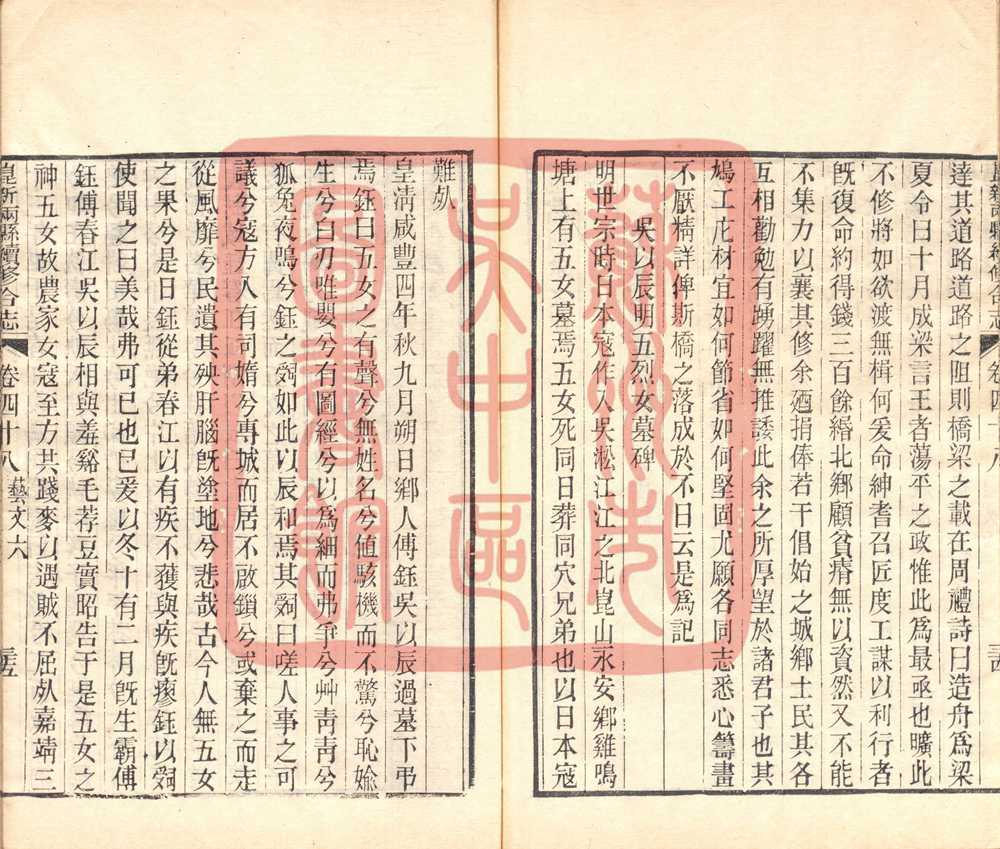 達其道路道路之阻則橋梁之載在周禮詩曰造舟爲梁
夏令曰十月成梁言王者蕩平之政惟此爲最亟也曠此
不修將如欲渡無楫何爰命紳耆召匠度工謀以利行者
旣復命約得錢三百餘緡北鄉顧貧瘠無以資然又不能
不集力以襄其修余廼捐俸若干倡始之城鄉士民其各
互相勸勉有踴躍無推諉此余之所厚望於諸君子也其
鳩工庀材宜如何節省如何堅固尤願各同志悉心籌畫
不厭精詳俾斯橋之落成於不日云是爲記
吳以辰明五烈女墓碑
明世宗時日本寇作入吳淞江江之北崑山永安鄉雞鳴
塘上有五女墓焉五女死同日葬同穴兄弟也以日本寇
難㱙
皇清咸豐四年秋九月朔日鄉人傅鈺吳以辰過墓下弔
焉鈺曰五女之有聲兮無姓名兮値駭機而不驚兮恥婾
生兮白刃唯嬰兮有圖經兮以爲細而弗爭兮艸靑靑兮
狐兔夜鳴兮鈺之䛐如此以辰和焉其䛐曰嗟人事之可
議兮寇方入有司媠兮專城而居不啟鎖兮或棄之而走
從風靡兮民遺其殃肝腦旣塗地兮悲哉古今人無五女
之果兮是日鈺從弟春江以有疾不獲與疾旣瘳鈺以䛐
使聞之曰美哉弗可已也已爰以冬十有二月旣生霸傅
鈺傅春江吳以辰相與羞谿毛荐豆實昭告于是五女之
神五女故農家女寇至方共踐麥以遇賊不屈㱙嘉靖三
崑新兩縣續修合志
卷四十八
藝文六
蘇州市
吳中區
圖書館